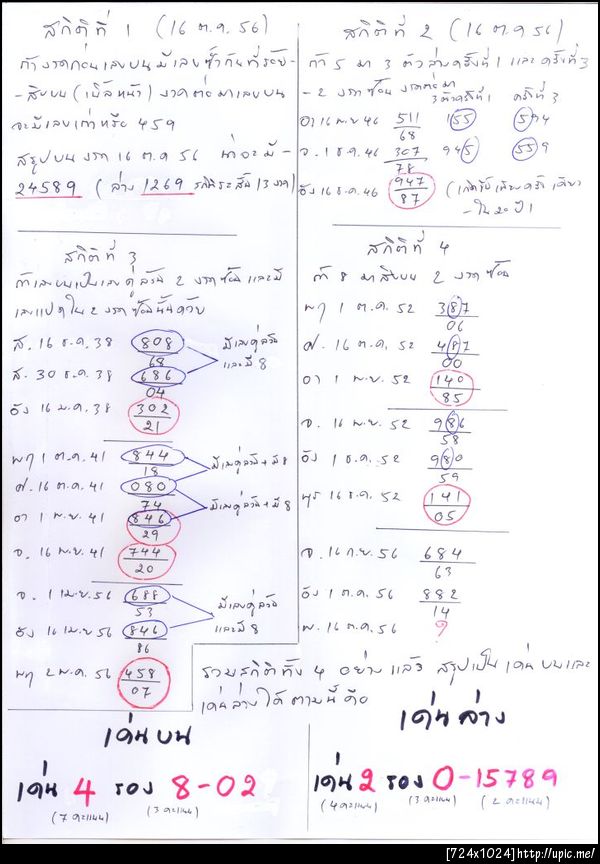 สถิติที่ 1 (16 ต.ค. 56)
ถ้างวดก่อนเลขบนมีเลขซ้ำกันที่ร้อย-
-สิบบน (เบิ้ลหน้า) งวดต่อมาเลขบน
จะมีเลขเก่าหรือ 459
สรุปบนงวด 16 ต.ค. 56 น่าจะมี -
24589 (ล่าง 1269
สถิติที่ 2 (16 ต.ค. 56)
ถ้า 5 มา 3 ตัวล่างครั้งที่ 1 และครั้งที่ 3
- 2 งวดซ้อน งวดต่อมา
3 ตัวครั้งที่ 1 ครั้งที่ 3
อา 16 พ.ย. 46 511 155 594
68
จ. 1 ธ.ค. 46 307 945 559
78
อัง 16 ธ.ค. 46 947
87
- ใน 20 ปี)
สถิติที่ 3
ถ้าเลขบนเป็นเลขคู่ล้วน 2 งวดซ้อน และมี
เลขแปดใน 2 งวดซ้อนนั้นด้วย
ส. 16 ธ.ค. 38 808
68
ส. 30 ธ.ค. 38 686
04
อัง 16 ม.ค. 38 302
21
มีเลขคู่ล้วน
และมี 8
พฤ 1 ต.ค. 41 844
18
ศ. 16 ต.ค. 41 080
74
อา 1 พ.ย. 41 846
29
จ. 16 พ.ย. 41 744
20
มีเลขคู่ล้วน+มี 8
มีเลขคู่ล้วน+มี 8
จ. 1 เม.ย. 56 688
53
อัง 16 เม.ย. 56 846
86
พฤ 2 พ.ค. 56 458
07
มีเลขคู่ล้วน
และมี 8
สถิติที่ 4
ถ้า 8 มาสิบบน 2 งวดซ้อน
พฤ 1 ต.ค. 52 387
06
ศ. 16 ต.ค. 52 487
00
อา 1 พ.ย. 52 140
85
จ. 16 พ.ย. 52 986
58
อัง 1 ธ.ค. 52 980
59
พุธ 16 ธ.ค. 52 141
05
จ. 16 ก.ย. 56 684
63
อัง 1 ต.ค. 56 882
14
พ. 16 ต.ค. 56 ?
รวมสถิติทั้ง 4 อย่าง แล้ว สรุปเป็น เด่นบนและ
เด่นล่างได้ตามนี้ คือ
เด่นบน
เด่น 4 รอง 8-02
(7 คะแนน) (3 คะแนน)
เด่นล่าง
เด่น 2 รอง 0-15789
(4 คะแนน) (3 คะแนน) (2 คะแนน)
[724x1024]http://upic.me/